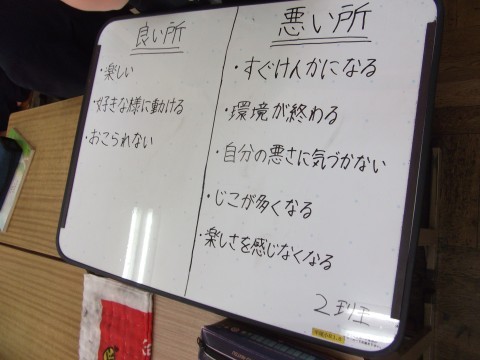 良い所
・楽しい
・好きな様に動ける
・おこられない
悪い所
・すぐけんかになる
・環境が終わる
・自分の悪さに気づかない
・じこが多くなる
・楽しさを感じなくなる
2班